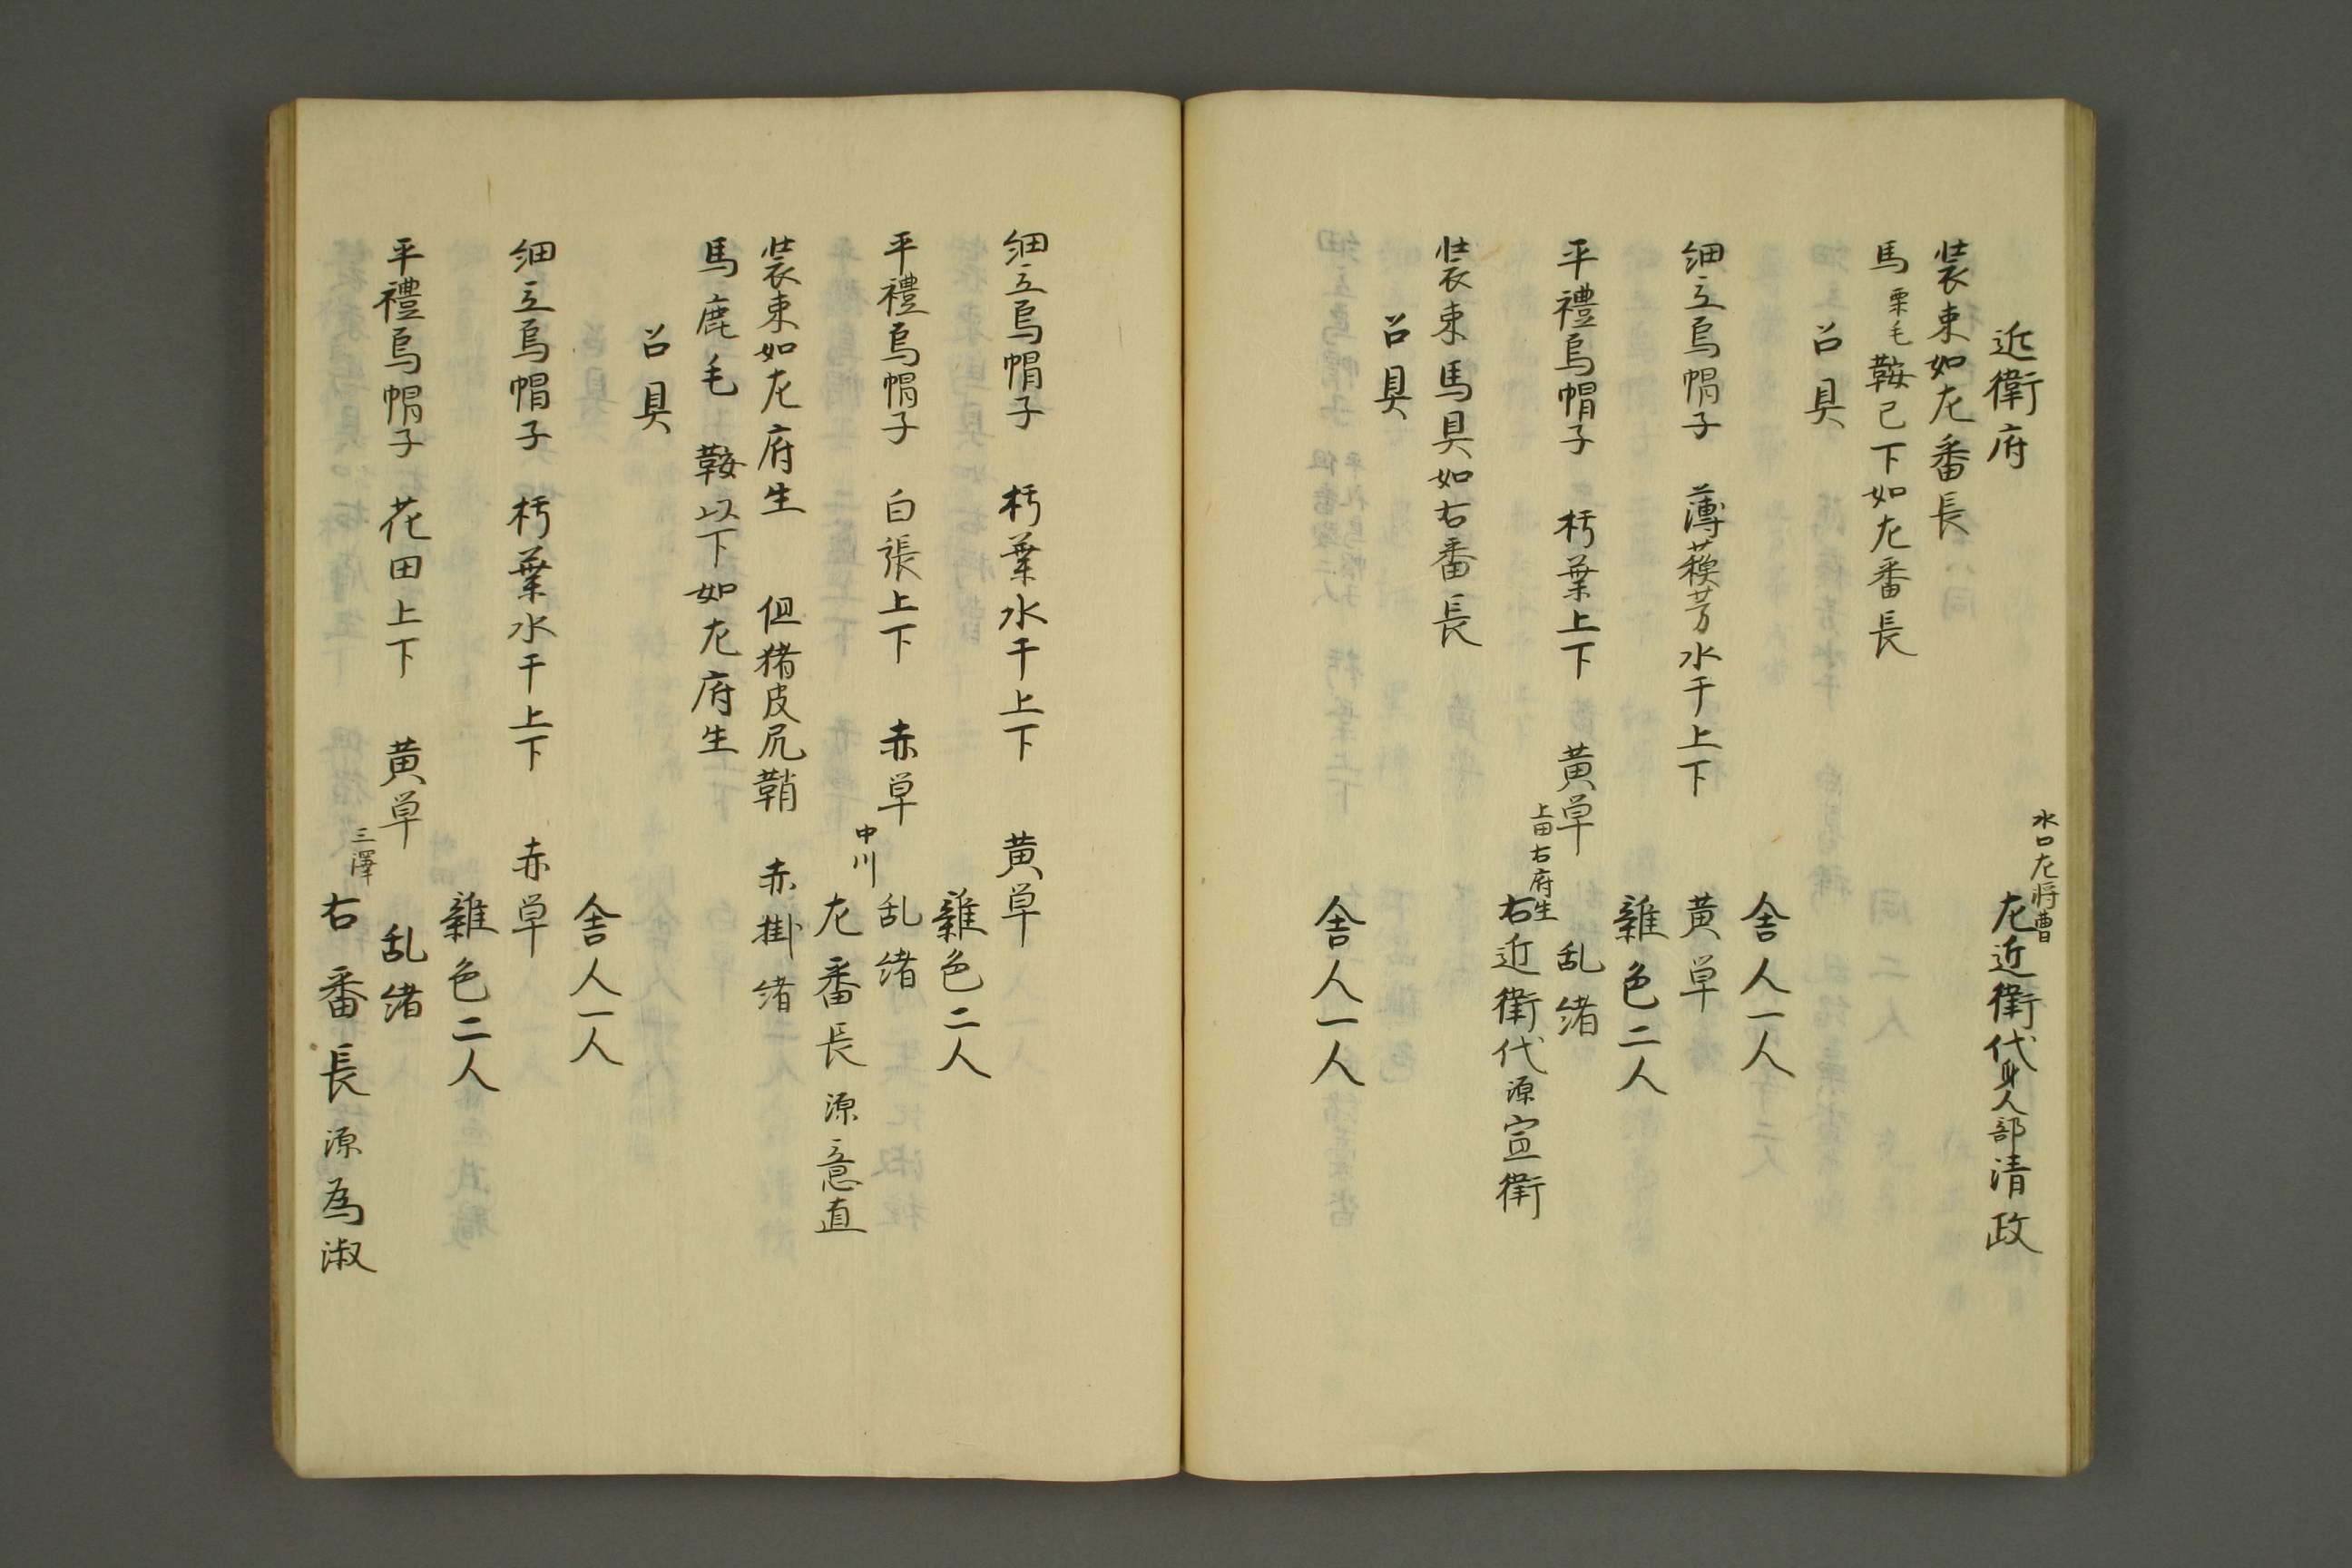 近衛府
水口左将曹
左近衛代身人部清政
装束如左番長
馬栗毛鞍已下如左番長
召具
舎人一人
細立烏帽子 薄蘓芳水干上下 黄単
雜色二人
平禮烏帽子 朽葉上下 黄単 乱緒
上田右府生
右近衛代源宣衛
装束馬具如右番長
召具
舎人一人
細立烏帽子 朽葉水干上下 黄単
雜色二人
平禮烏帽子 白張上下 赤単 乱緒
中川
左番長源意直
装束如左府生 但猪皮尻鞘 赤掛緒
馬鹿毛 鞍以下如左府生
召具
舎人一人
細立烏帽子 朽葉水干上下 赤単
雜色二人
平禮烏帽子 花田上下 黄単 乱緒
三澤
右番長源為淑